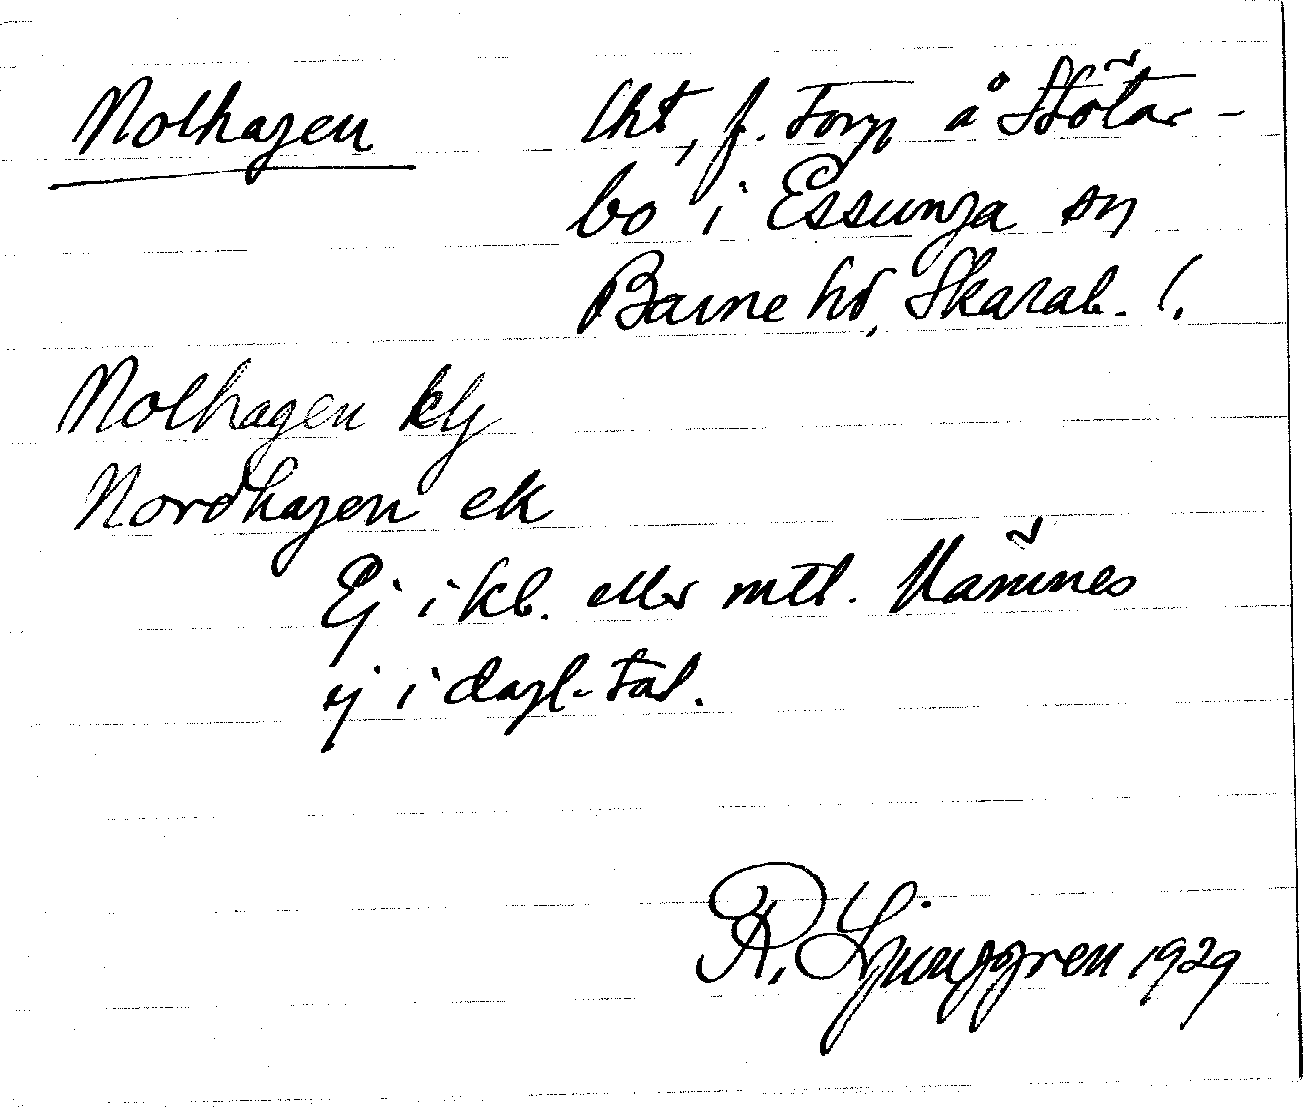 Nolhagen lht, f. torp å Stötar-
bo i Essunga sn
Barne hd, Skarab. l.
Nolhagen klj
Nordhagen ek
Ej i kb. eller mtl. Nämnes
ej i dagl. tal.
R. Ljunggren 1929